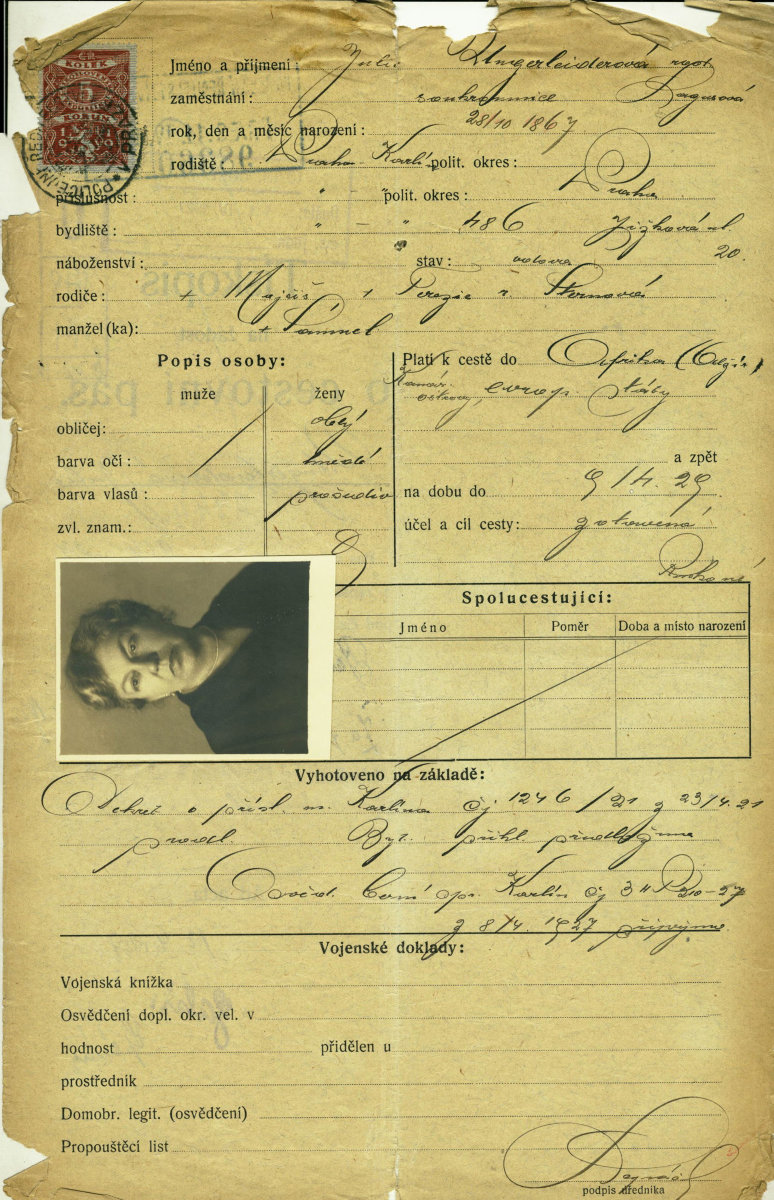 KOLEK
5
KORUN
1919
Jméno a příjmení: Julie Ungerleiderová roz.
zaměstnání: soukromnice Ragusová
rok, den a měsíc narození: 28/10 1867
rodiště: Praha Karlín polit. okres: Praha
příslušnost: " polit. okres:
bydliště: " - " 486 Žižkova ul. 20.
náboženství: stav: vdova
rodiče: + Mojžíš + Terezie r. Sternová
manžel (ka): + Samuel
Popis osoby:
muže ženy
obličej: oblý
barva očí: hnědé
barva vlasů: prošedivělé
zvl. znam.:
Platí k cestě do Afrika (Algír)
Kanár. ostrovy, evrop. státy
a zpět
na dobu do 9/4. 29
účel a cíl cesty: zotavená
Spolucestující:
Jméno Poměr Doba a místo narození
Vyhotoveno na základě:
Dekret o přísl. m. Karlína čj 1246/21 z 23/4.21
prodl. Byt. přihl. předlož
Osvěd. Karlín čj 3
z 8/4. 1927
Vojenské doklady:
Vojenská knížka
Osvědčení dopl. okr. vel. v
hodnost přidělen u
prostředník
Domobr. legit. (osvědčení)
Propouštěcí list
podpis úředníka